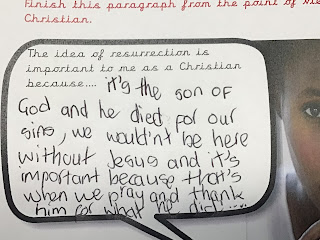 Finish this paragraph from the point of vie
Christian.
The idea of resurrection is
important to me as a Christian
because.... it's the son of
God and he died for our
sins, we would'nt be here
without Jesus and it's
important because that's
when we pray and thank
him for what he did.....